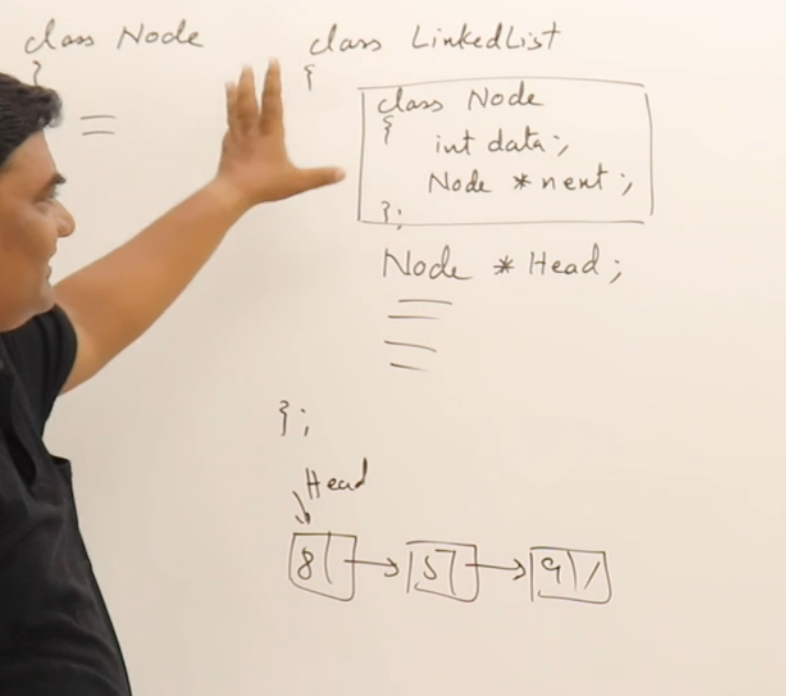 class Node
{
class LinkedList
{
class Node
{
int data;
Node *next;
};
Node *Head;
};
Head
8 5 9 /